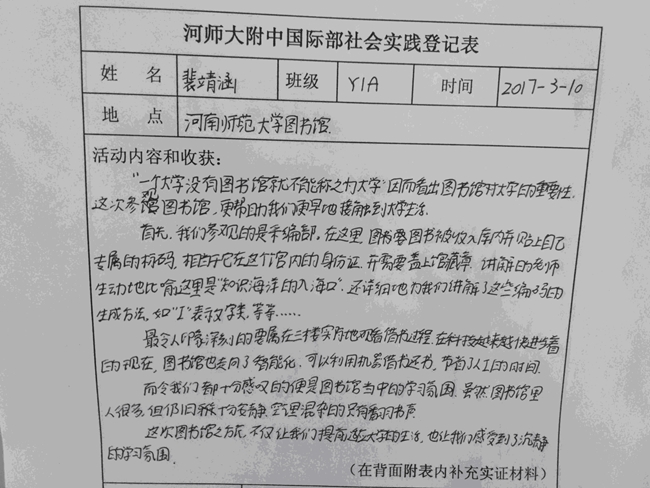 河师大附中国际部社会实践登记表
姓 名 裴靖涵 班级 Y1A 时间 2017-3-10
地 点 河南师范大学图书馆
活动内容和收获：
“一个大学没有图书馆就不能称之为大学”因而看出图书馆对大学的重要性
这次参观图书馆，更帮助我们更早地接触到大学生活.
首先，我们参观的是采编部，在这里，图书要图书被收入库内并贴上自己
专属的标码，相当于它在这个馆内的身份证，并需要盖上馆藏章，讲解的老师
生动地比喻这里是“知识海洋的入海口”，还详细地为我们讲解了这些编码的
生成方法，如“I”表示文学类，等等……
最令人印象深刻的要属在三楼实际地观看借书过程，在科技越来越快进步着
的现在，图书馆也走向了智能化，可以利用机器借书还书，节省了人工的时间.
而令我们都十分感叹的便是图书馆当中的学习氛围，虽然图书馆里
人很多，但仍旧十分安静，空里混杂的只有翻书声
这次图书馆之旅，不仅让我们提前适应大学的生活，也让我们感受到了沉静
的学习氛围.
（在背面附表内补充实证材料）